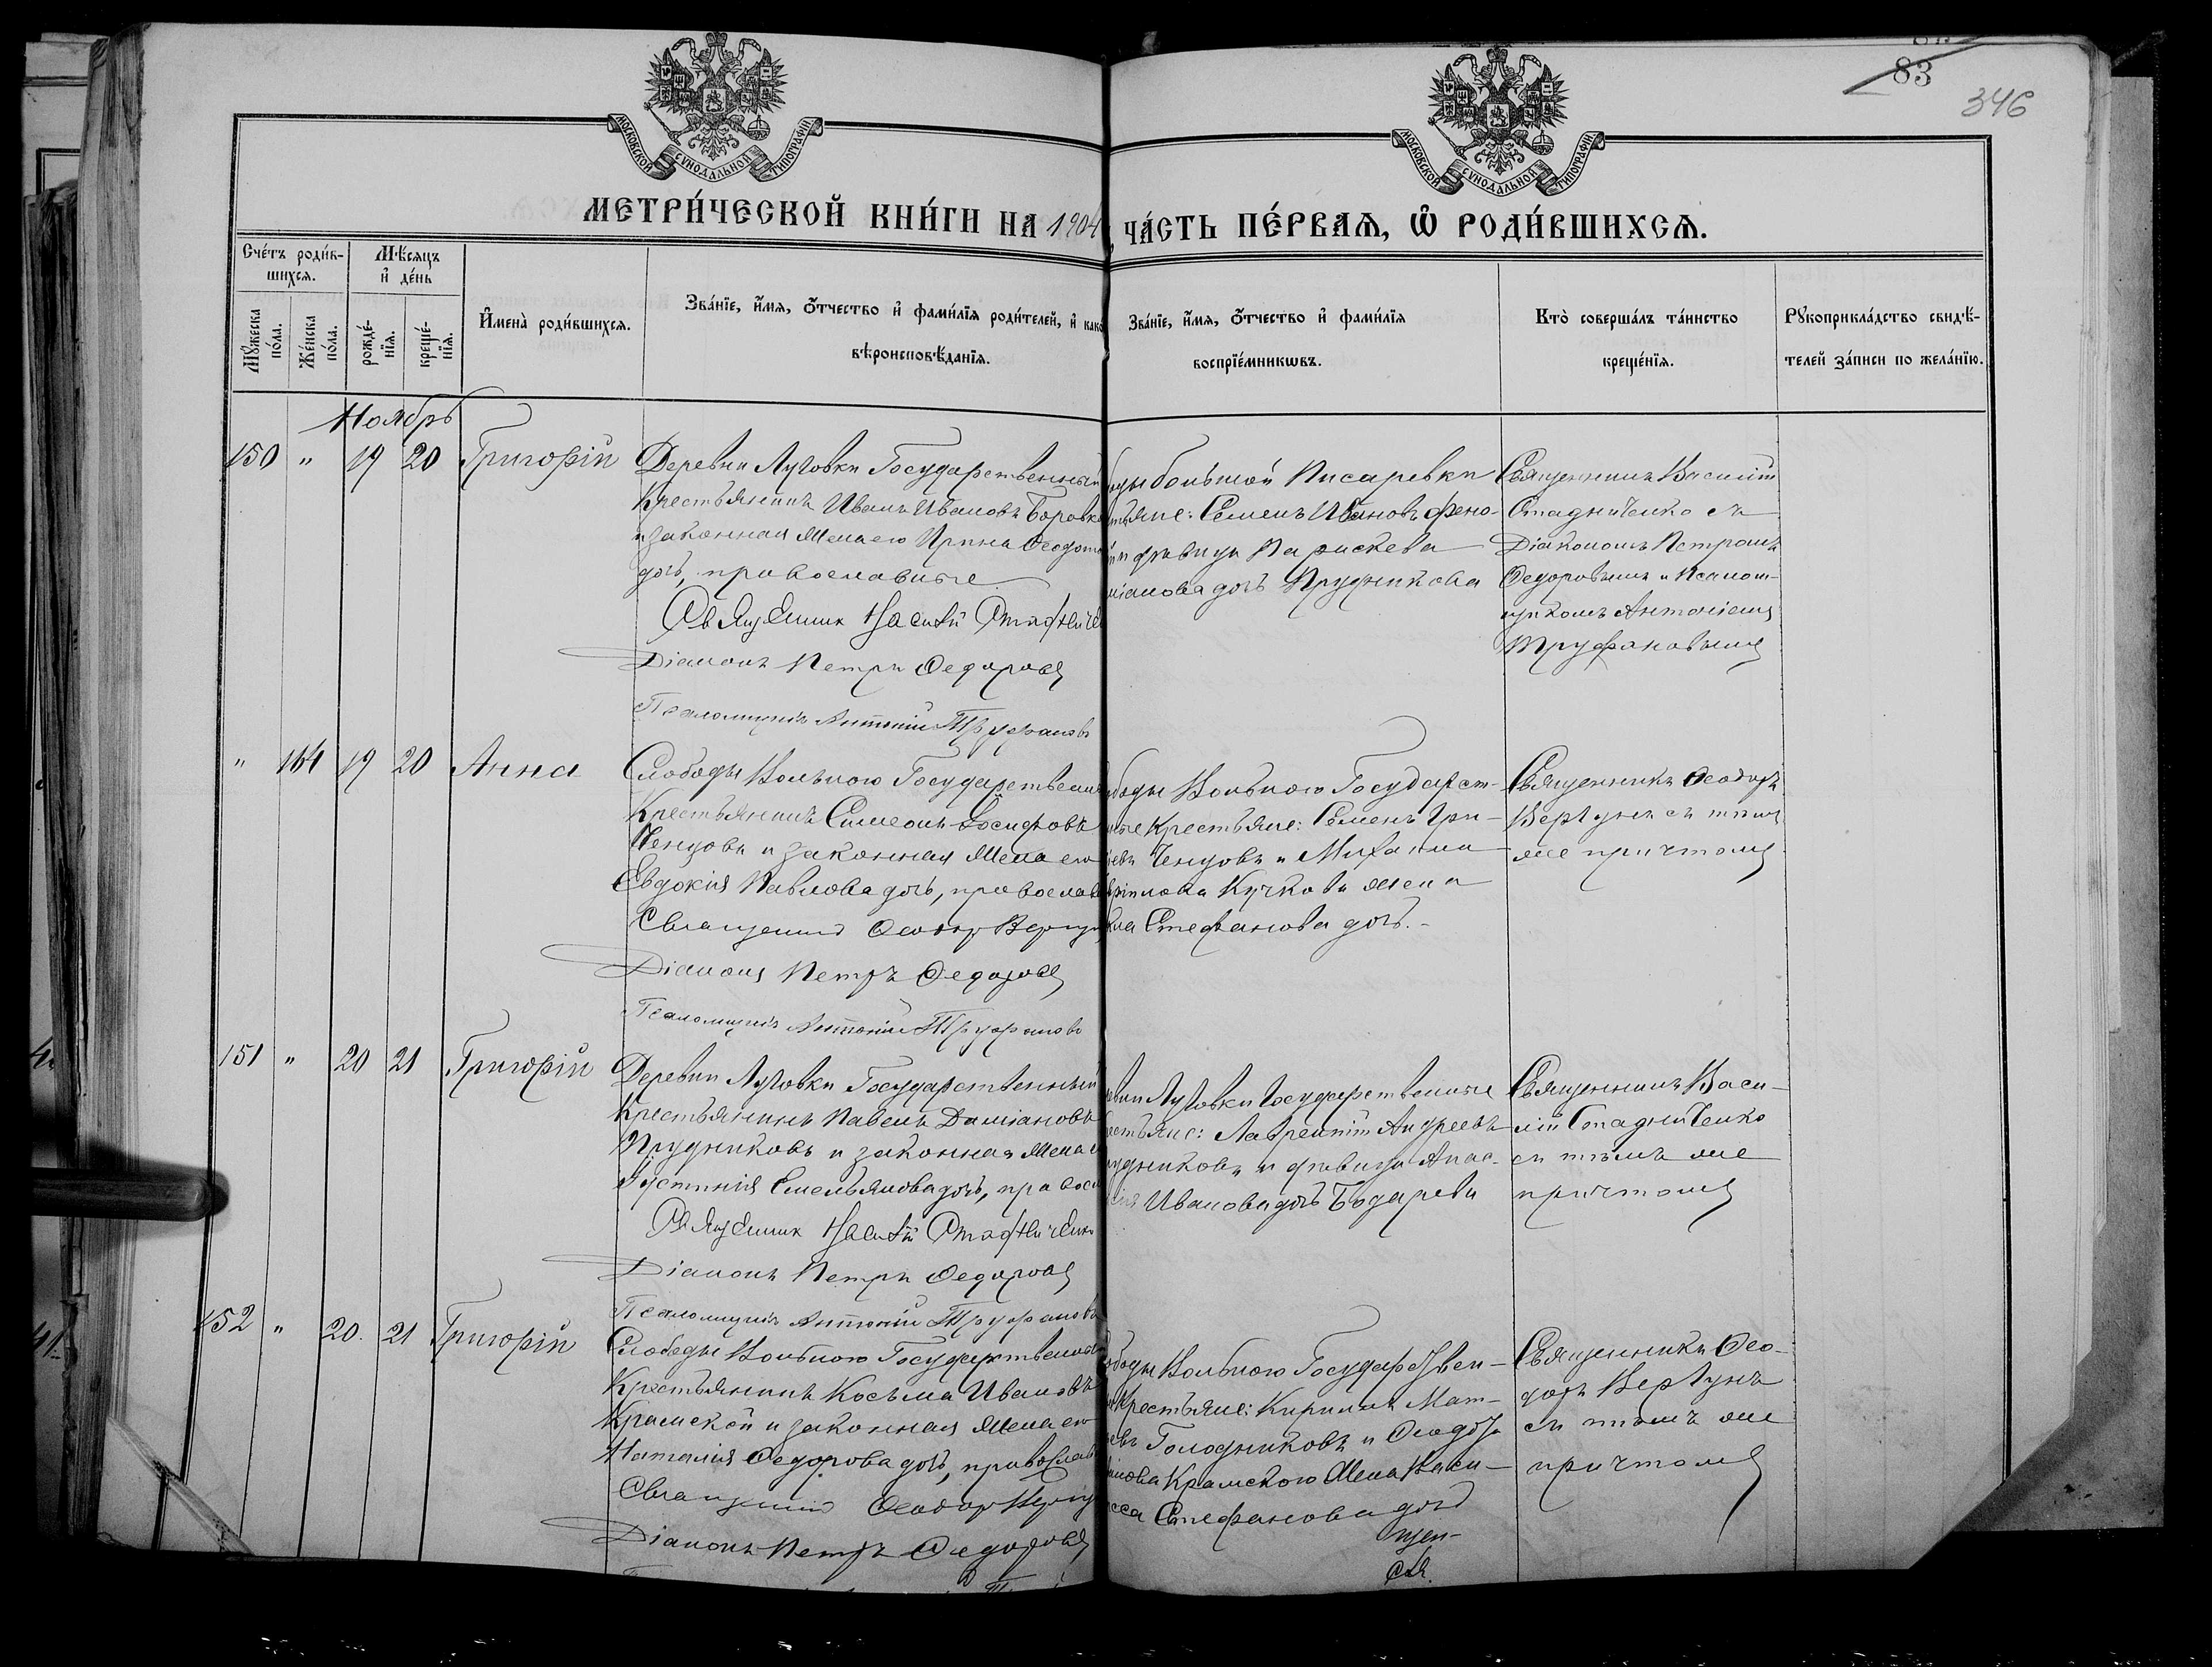 83
346
МОСКОВСКОЙ СУНОДАЛЬНОЙ ТИПОГРАФІИ
МОСКОВСКОЙ СУНОДАЛЬНОЙ ТИПОГРАФІИ
МЕТРИ́ЧЕСКОЙ КНИ́ГИ НА 1904
ЧА́СТЬ ПЕ́РВАЯ, Ѡ РОДИ́ВШИХСЯ.
Сче́тъ роди́в-
шихся.
Му́жеска по́ла.
Же́нска по́ла.
Мѣ́сяцъ
и҆ де́нь
рожде́-
нїя.
креще́-
нїя.
И҆мена̀ роди́вшихся.
Зва́нїе, и҆́мя, ѻ҆́тчество и҆ фами́лїя роди́телей, и҆ како
вѣроисповѣ́данїя.
Зва́нїе, и҆́мя, ѻ҆́тчество и҆ фами́лїя
воспрїе́мникѡвъ.
Кто̀ соверша́лъ та́инство
креще́нїя.
Рꙋкоприкла́дство свидѣ́-
телей за́писи по жела́нїю.
Ноябрь
150 " 19 20 Григорій
Деревни Луговки Государственный
Крестьянинъ Иванъ Ивановъ Боровко
и законная жена его Ирина Ѳеодото
дочь, православные
Священник Василій Стадниче
Діаконъ Петръ Ѳедоровъ
Псаломщикъ Антоній Труфановъ
оды большой Писаревки
тьяне: Семенъ Ивановъ
и дѣвица Параскева
міанова дочь Прудникова
Священникъ Василій
Стадниченко съ
Діакономъ Петромъ
Ѳедоровымъ и Псалом-
щикомъ Антоніемъ
Труфановымъ
" 164 19 20 Анна
Слободы Вольного Государственн
Крестьянинъ Симеонъ Іосифовъ
Ченцовъ и законная жена его
Евдокія Павлова дочь, православ
Священник Ѳеодор Вергун
Діаконъ Петръ Ѳедоровъ
Псаломщикъ Антоній Труфановъ
ободы Вольного Государст-
ные Крестьяне: Семенъ Гри-
евъ Ченцовъ и Михаила
Кучкова жена
Стефанова дочь.-
Священникъ Ѳеодоръ
Вергунъ съ тѣмъ
же причтомъ
151 " 20 21 Григорій
Деревни Луговки Государственный
Крестьянинъ Павелъ Даміановъ
Прудниковъ и законная жена е
Іустинія Емельянова дочь, правосл
Священник Василій Стадниченко
Діаконъ Петръ Ѳедоровъ
Псаломщикъ Антоній Труфановъ
евни Луговки Государственные
естьяне: Лаврентій Андреевъ
удниковъ и дѣвица Анас-
сія Иванова дочь Бодарева
Священникъ Васи-
лій Стадниченко
съ тѣмъ же
причтомъ
152 " 20. 21 Григорій
Слободы Вольного Государственный
Крестьянинъ Косьма Ивановъ
Крамской и законная жена его
Наталія Ѳедорова дочь, православ
Священник Ѳеодор Вергун
Діаконъ Петръ Ѳедоровъ
ободы Вольного Государствен-
Крестьяне: Кириллъ Мат-
евъ Голодниковъ и
Крамского жена Васи-
сса Стефанова дочь
щен-
Священникъ Ѳео-
доръ Вергунъ
съ тѣмъ же
причтомъ